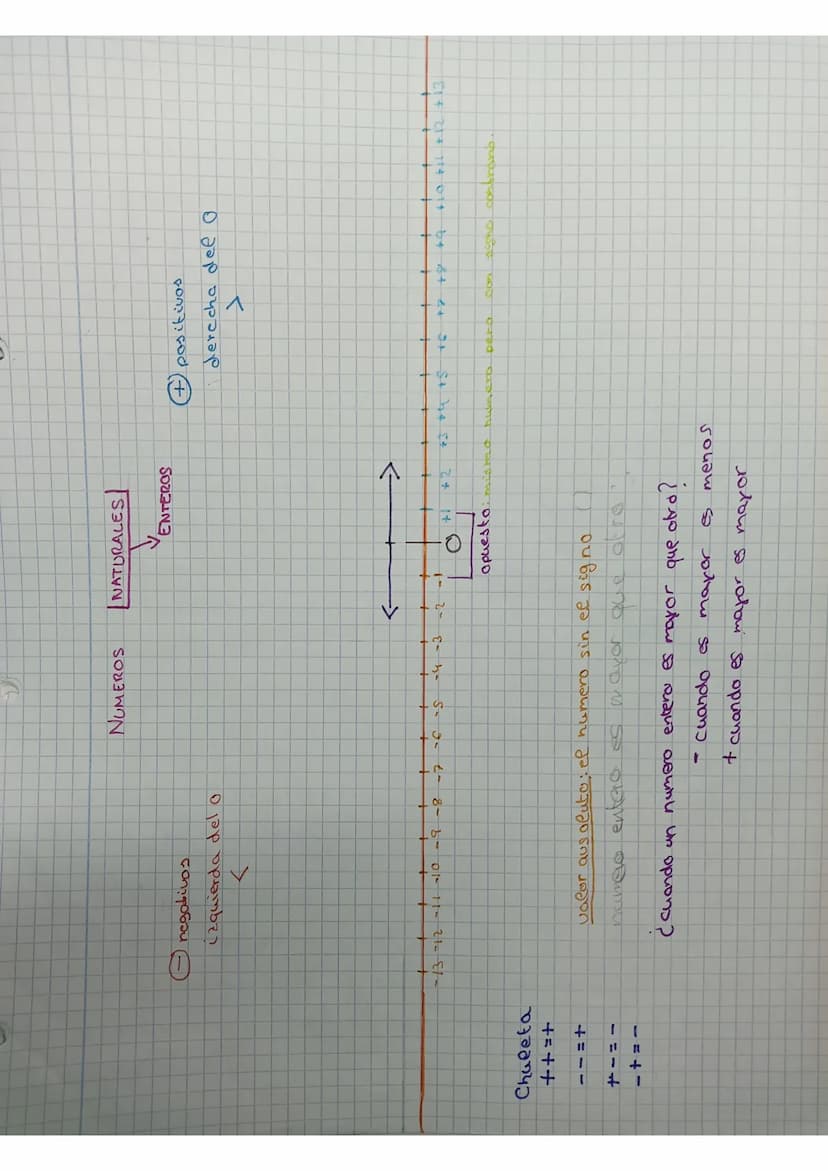 NUMEROS NATURALES
ENTEROS
- negativos
izquierda del 0
<
+ positivos
derecha del 0
>
-13 -12 -11 -10 -9 -8 -7 -6 -5 -4 -3 -2 -1 0 +1 +2 +3 +4 +5 +6 +7 +8 +9 +10 +11 +12 +13
opuesto: mismo numero pero con signo contrario.
Chuleta
+ + = +
- - = +
+ - = -
- + = -
valor ausoluto: el numero sin el signo
numero entero es mayor que otro
¿cuando un numero entero es mayor que otro?
- cuando es mayor es menos
+ cuando es mayor es mayor